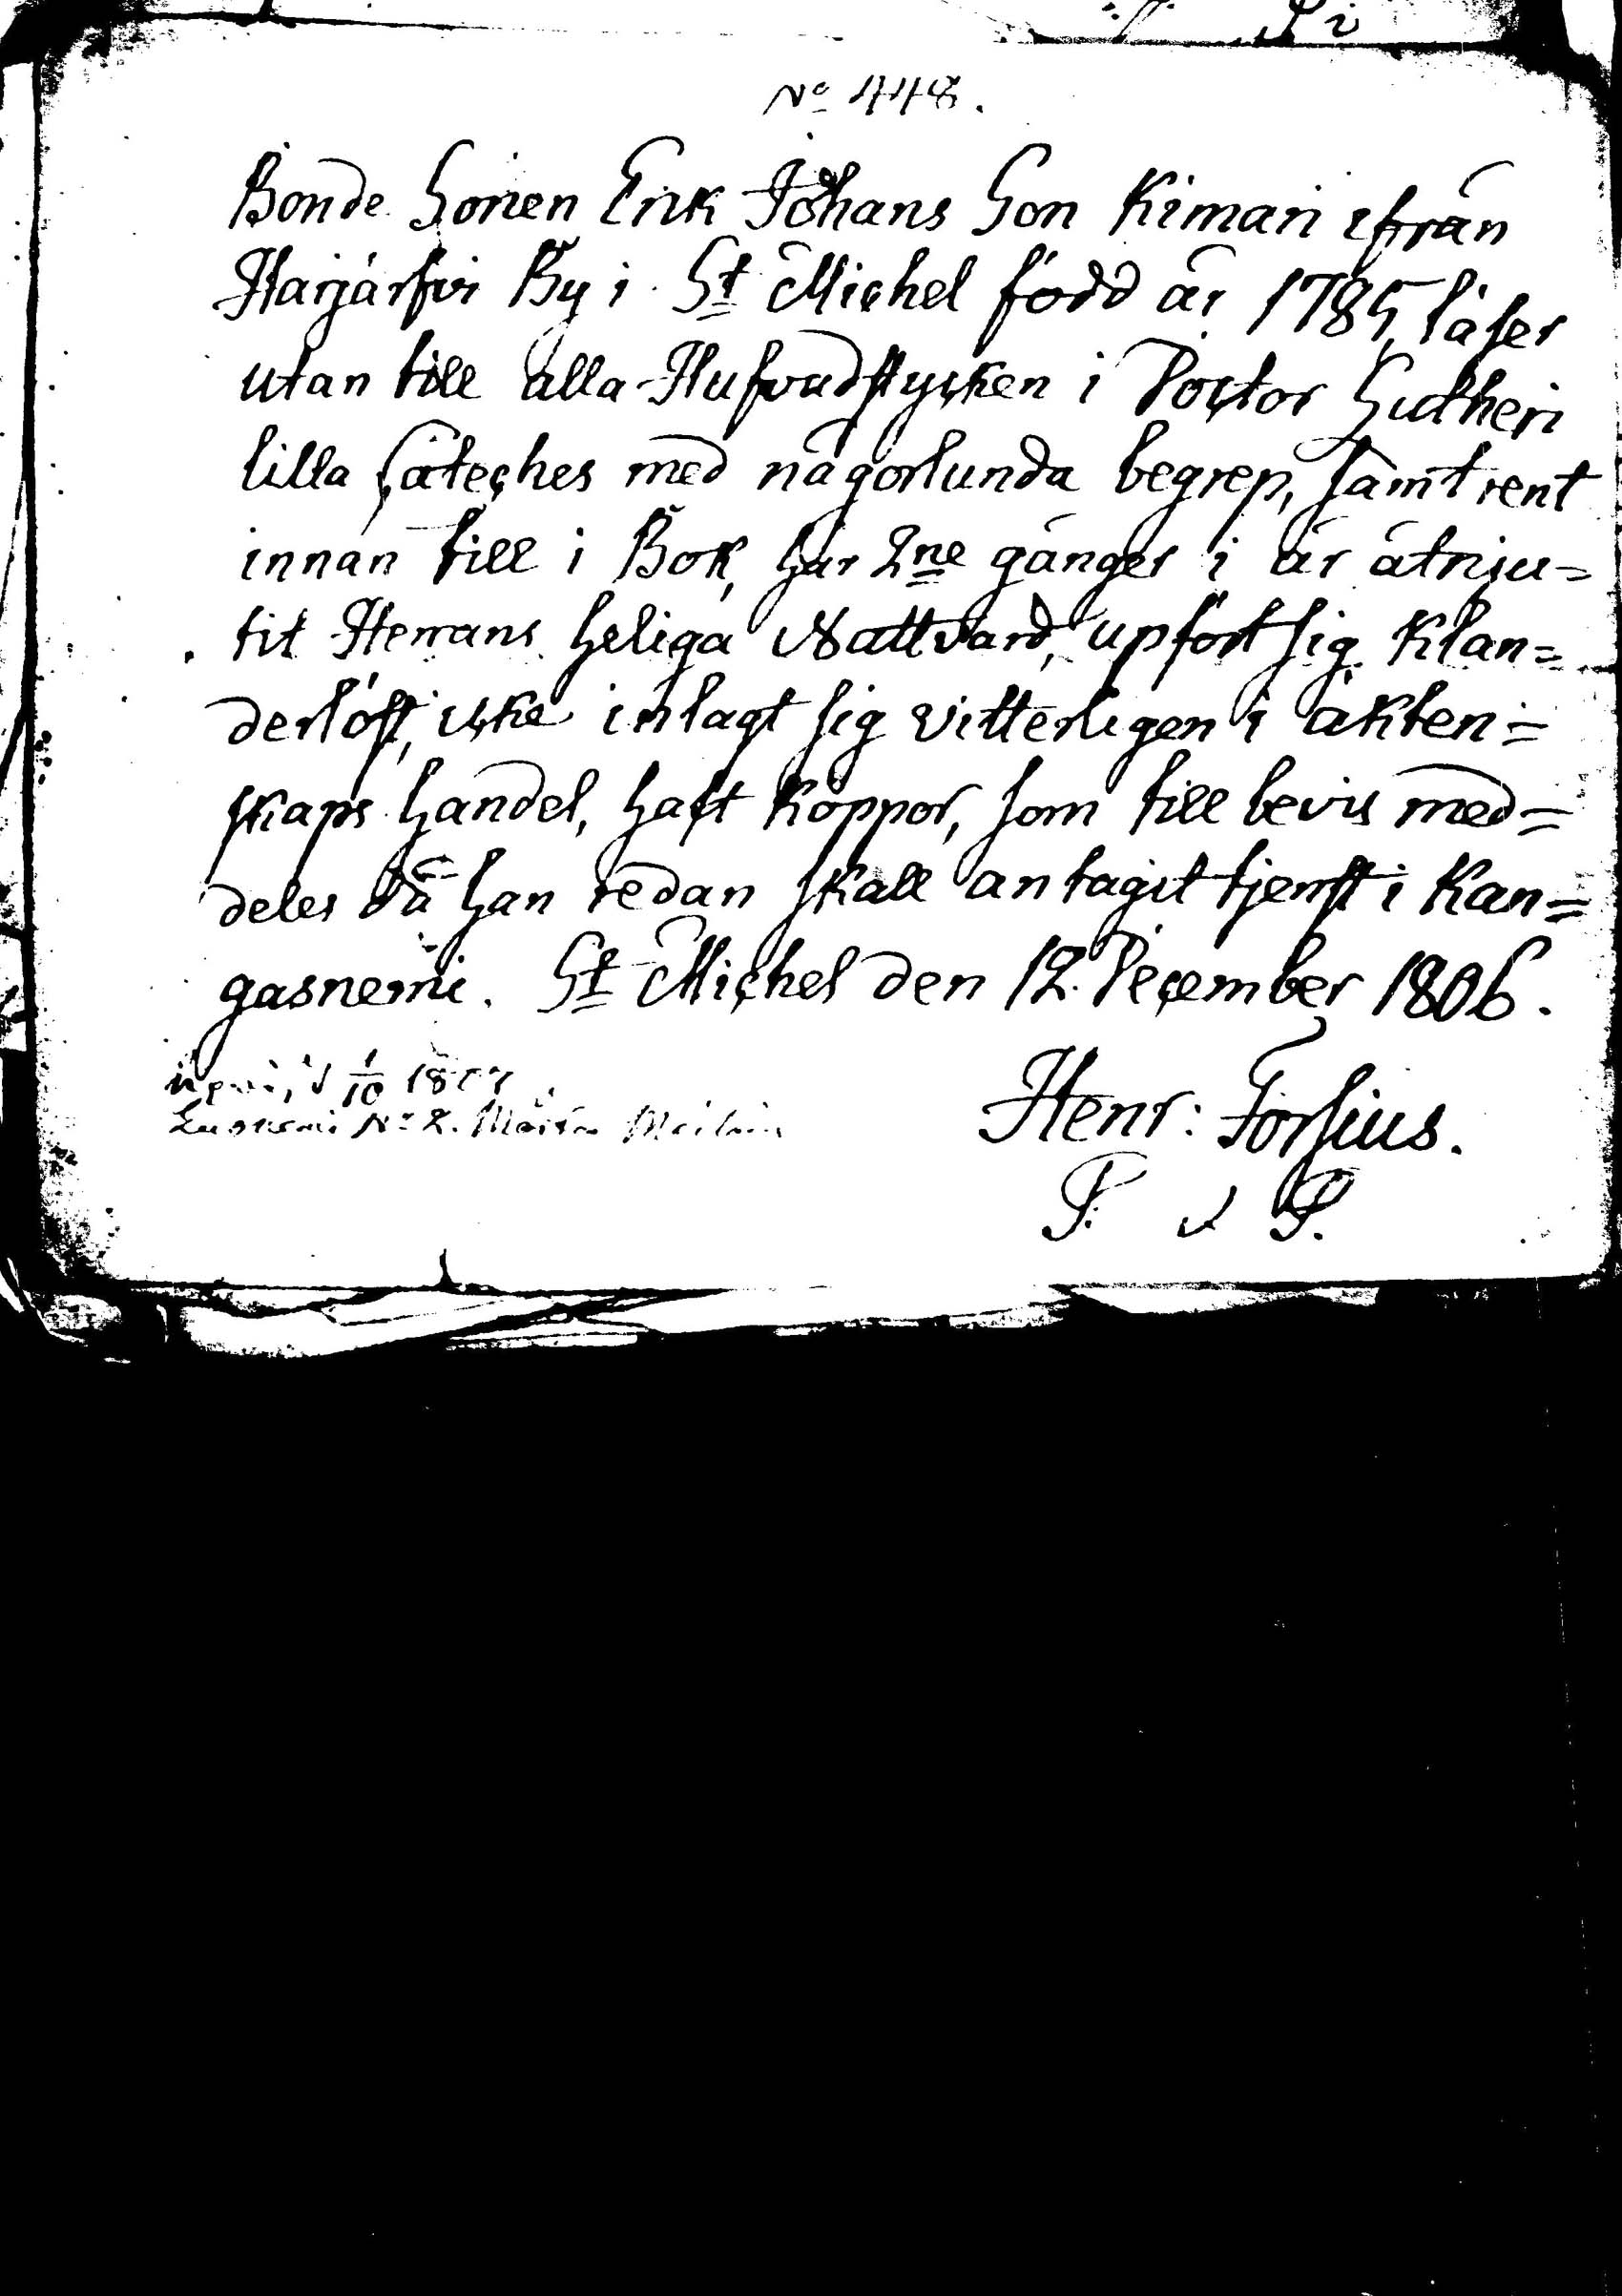 No 448.
Bonde Sonen Erik Johans Son Kimari ifrån
Harjärfvi By i St Michel född år 1785, läser
utan till alla Hufvudstycken i Doctor Lutheri
lilla Cateches med någorlunda begrep, samt rent
innan till i Bok, har 2ne gånger i år åtnju=
tit Herrans heliga Nattvard, upfört sig klan=
derlöst, icke inlagt sig vitterligen i äkten=
skaps handel, haft koppor, som till bevis med=
deles då han redan skall antagit tjenst i Kan=
gasnemi. St Michel den 12 December 1806.
1/10 1807
No 2.
Henr: Forsius.
P. v P.